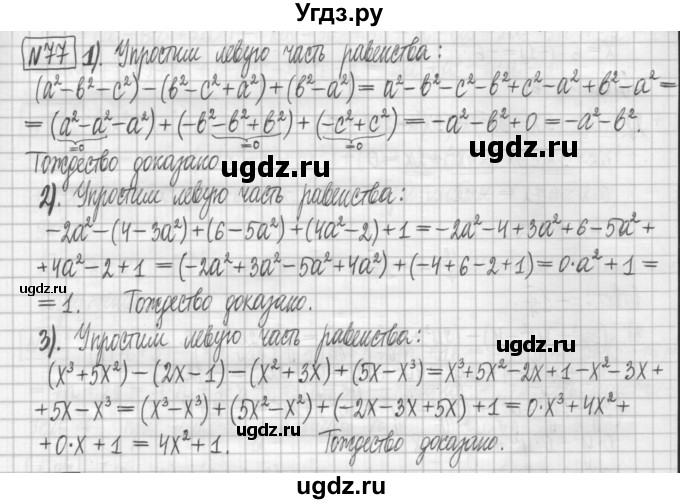 Угдз.ру
N77 1). Упростим левую часть равенства:
(a²-b²-c²)-(b²-c²+a²)+(b²-a²)=a²-b²-c²-b²+c²-a²+b²-a²=
=(a²-a²-a²)+(-b²-b²+b²)+(-c²+c²)=-a²-b²+0=-a²-b².
=0 =0 =0
Тождество доказано
угдз.ру
2). Упростим левую часть равенства:
-2a²-(4-3a²)+(6-5a²)+(4a²-2)+1=-2a²-4+3a²+6-5a²+
+4a²-2+1=(-2a²+3a²-5a²+4a²)+(-4+6-2+1)=0·a²+1=
угдз.ру
=1. Тождество доказано.
угдз.ру
3). Упростим левую часть равенства:
угдз.ру
(x³+5x²)-(2x-1)-(x²+3x)+(5x-x³)=x³+5x²-2x+1-x²-3x+
+5x-x³=(x³-x³)+(5x²-x²)+(-2x-3x+5x)+1=0·x³+4x²+
+0·x+1=4x²+1. Тождество доказано.
угдз.ру
угдз.ру